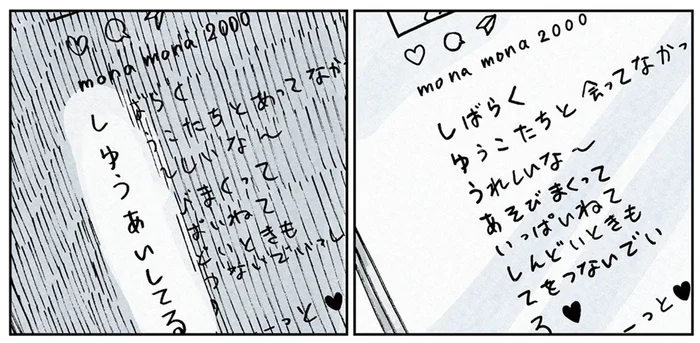 mona mona 2000
しゆうあいしてる
ばらく
うこたちとあってなか
しいな〜
びまくって
ぱいねて
いときも
ーっと♥
mona mona 2000
しばらく
ゆうこたちと 会ってなかっ
うれしいな〜
あそびまくって
いっぱいねて
しんどいときも
てをつないでい
る♥
ーっと♥